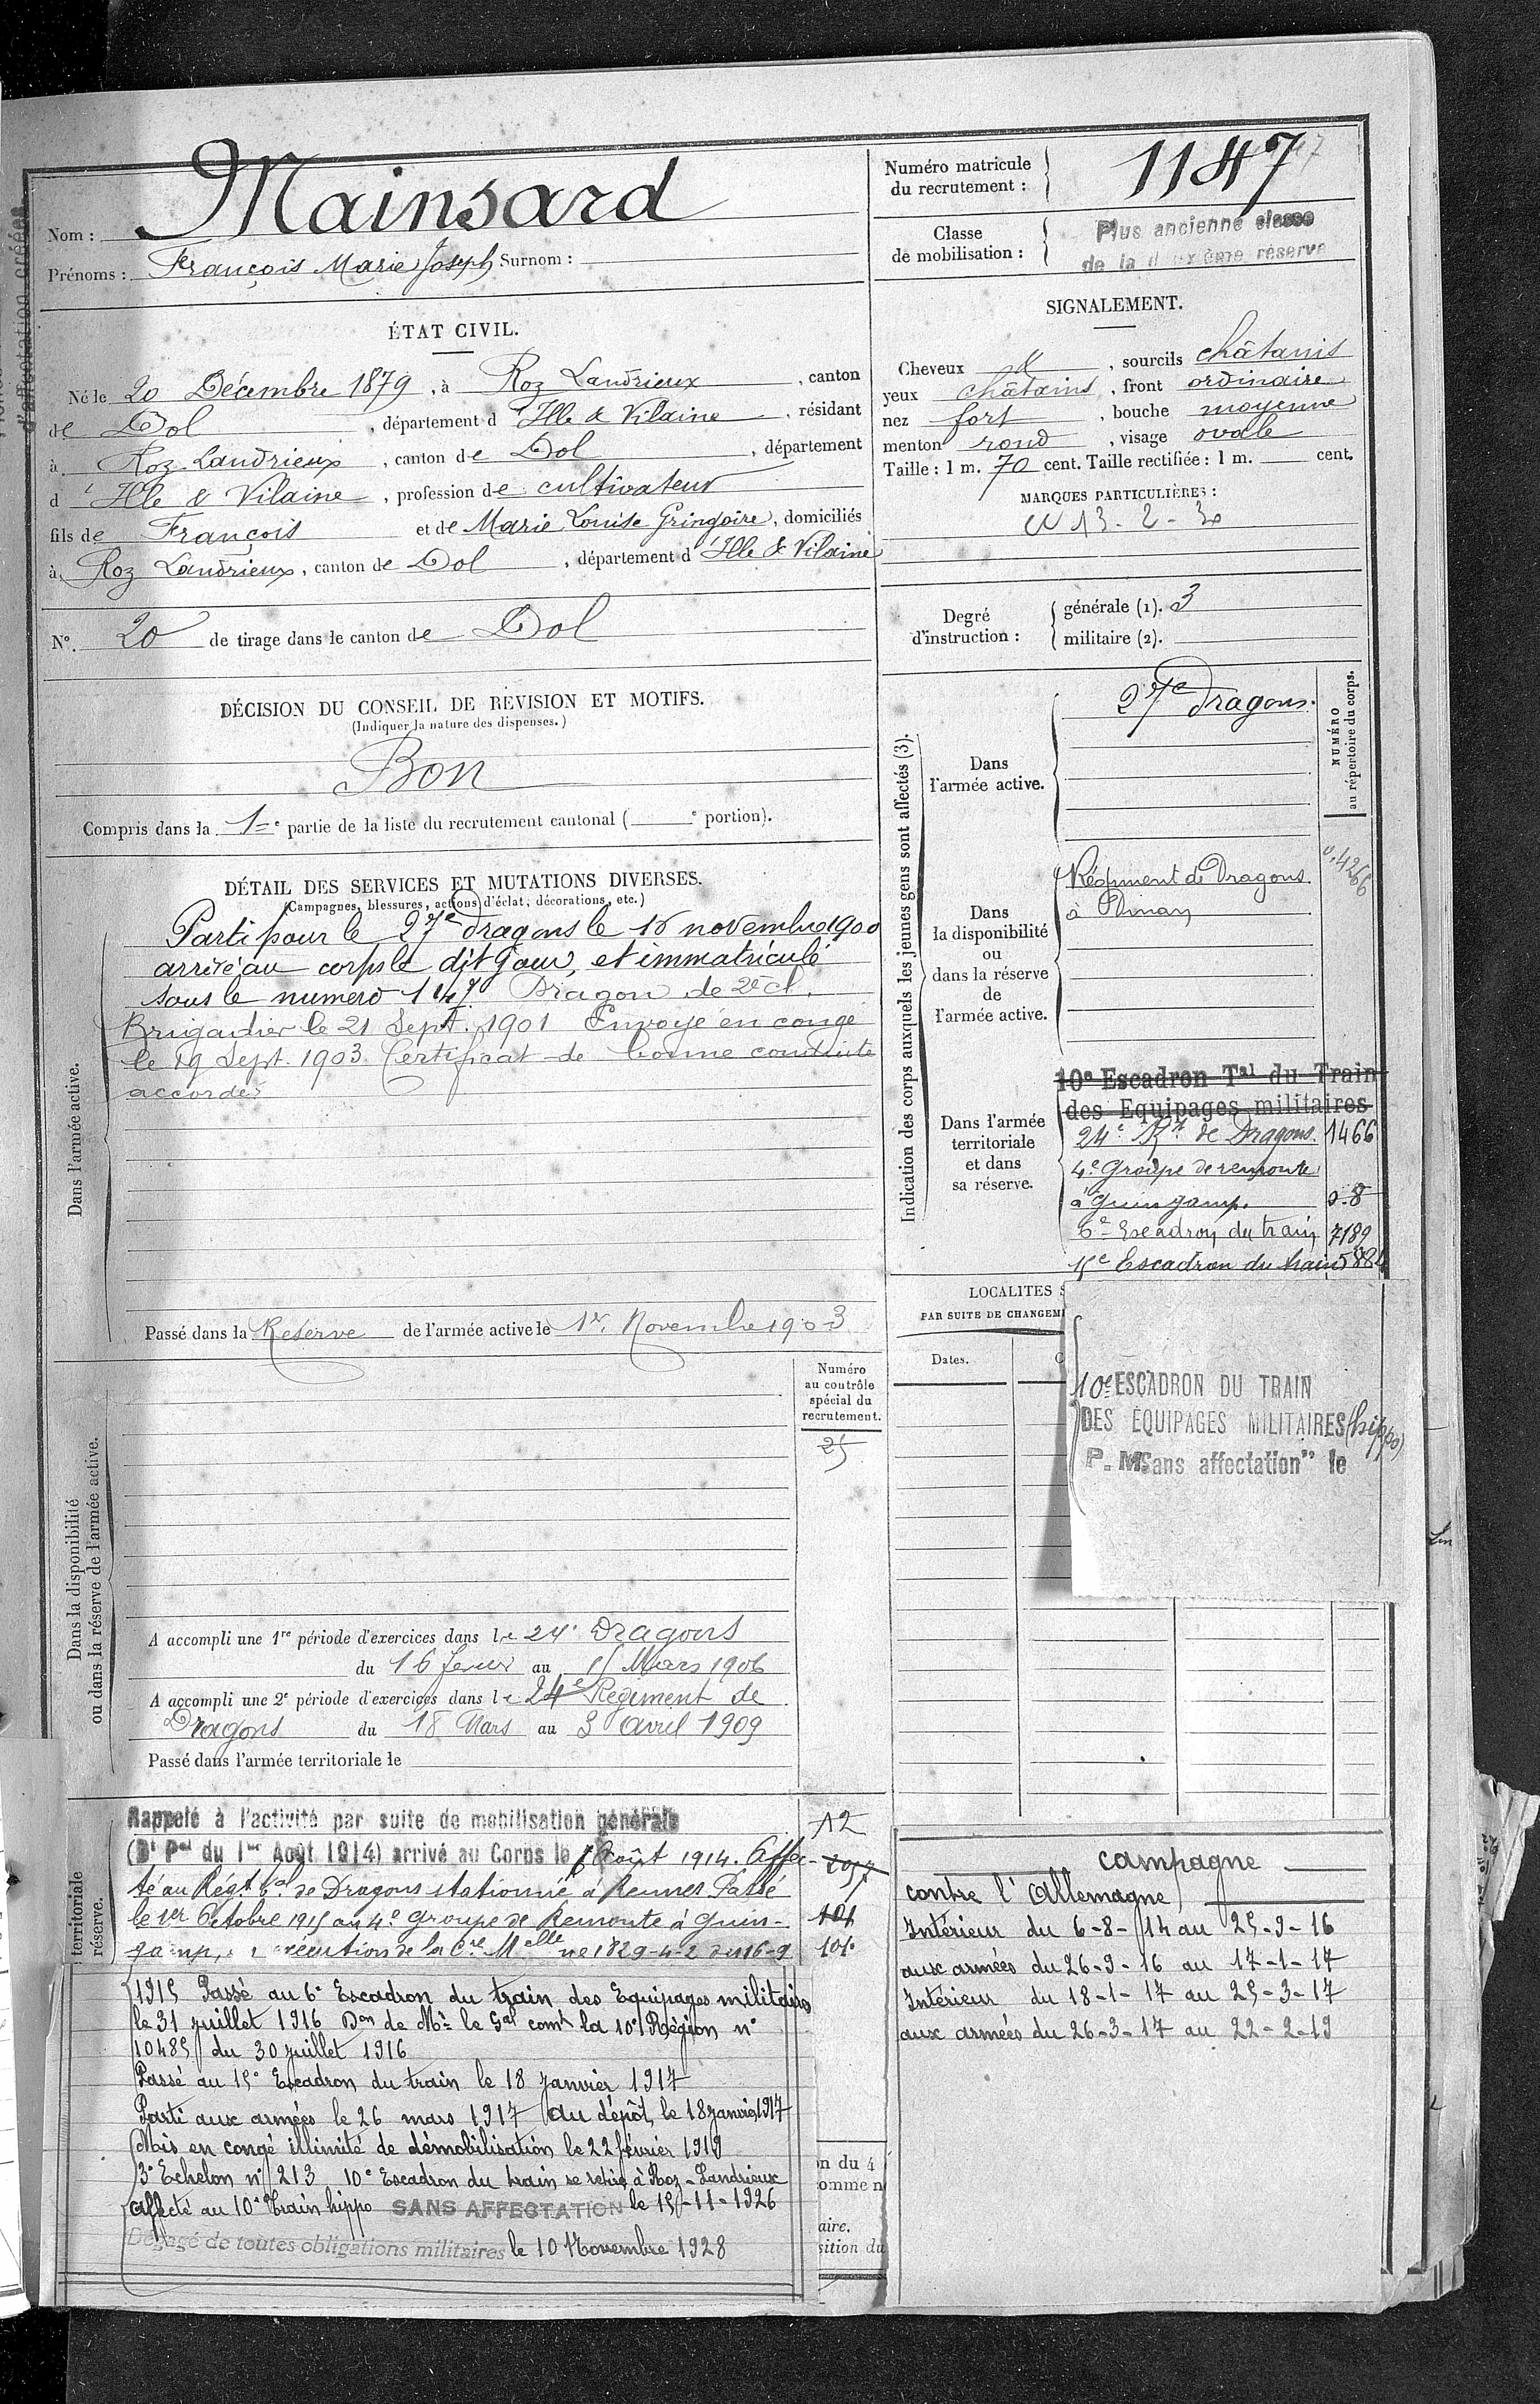 Nom : Mainsard
Prénoms : François Marie Joseph Surnom :
Numéro matricule
du recrutement : 1147
Classe
de mobilisation : Plus ancienne classe
de la deuxième réserve
ÉTAT CIVIL.
Né le 20 Décembre 1879, à Roz Landrieux, canton
de Dol, département d'Ille & Vilaine, résidant
à Roz Landrieux, canton de Dol, département
d'Ille & Vilaine, profession de cultivateur
fils de François et de Marie Louise Gringoire, domiciliés
à Roz Landrieux, canton de Dol, département d'Ille & Vilaine
N°. 20 de tirage dans le canton de Dol
SIGNALEMENT.
Cheveux &, sourcils châtains
yeux châtains, front ordinaire
nez fort, bouche moyenne
menton rond, visage ovale
Taille : 1 m. 70 cent. Taille rectifiée : 1 m. cent.
MARQUES PARTICULIÈRES :
Degré
d'instruction :
générale (1). 3
militaire (2).
DÉCISION DU CONSEIL DE RÉVISION ET MOTIFS.
(Indiquer la nature des dispenses.)
Bon
Compris dans la 1re partie de la liste du recrutement cantonal ( e portion).
DÉTAIL DES SERVICES ET MUTATIONS DIVERSES.
(Campagnes, blessures, actions d'éclat, décorations, etc.)
Dans l'armée active.
Parti pour le 27e dragons le 16 novembre 1900
arrivé au corps le dit jour, et immatriculé
sous le numéro 147 Dragon de 2e cl.
Brigadier le 21 Sept. 1901 Envoyé en congé
le 19 Sept. 1903 Certificat de bonne conduite
accordé
Passé dans la Réserve de l'armée active le 1er Novembre 1903
Indication des corps auxquels les jeunes gens sont affectés (3).
NUMÉRO
au répertoire du corps.
Dans
l'armée active.
27e Dragons.
Dans
la disponibilité
ou
dans la réserve
de
l'armée active.
Régiment de Dragons
à Dinan
4266
Dans l'armée
territoriale
et dans
sa réserve.
10e Escadron Tal du Train
des Equipages militaires
24e Rgt de Dragons. 1466
4e Groupe de remonte
à Guingamp. 0.8
6e Escadron du train 7189
15e Escadron du train
LOCALITES
PAR SUITE DE CHANGEM
Dates.
10e ESCADRON DU TRAIN
DES ÉQUIPAGES MILITAIRES (hippo)
P. M. "Sans affectation" le
Numéro
au contrôle
spécial du
recrutement.
25
Dans la disponibilité
ou dans la réserve de l'armée active.
A accompli une 1re période d'exercices dans le 24e Dragons
du 16 février au 15 Mars 1906
A accompli une 2e période d'exercices dans le 24e Régiment de
Dragons du 18 Mars au 3 avril 1909
Passé dans l'armée territoriale le
territoriale
réserve.
Rappelé à l'activité par suite de mobilisation générale
(Dt Pel du 1er Août 1914) arrivé au Corps le 6 Août 1914. Affec-
té au Régt Cal de Dragons stationné à Rennes Passé
le 1er Octobre 1915 au 4e groupe de Remonte à Guin-
gamp, exécution de la Cre Melle ne 1829-4-2 du 16-9
12
101
101
1915 Passé au 6e Escadron du train des Equipages militaires
le 31 juillet 1916 Don de Mr le Gal comt la 10e Région n°
10485 du 30 juillet 1916
Passé au 15e Escadron du train le 18 Janvier 1917
Parti aux armées le 26 mars 1917 Au dépôt, le 18 janvier 1917
Mis en congé illimité de démobilisation le 22 février 1919
3e Echelon n° 213 10e Escadron du train se retire à Roz-Landrieux
Affecté au 10e Train hippo SANS AFFECTATION le 15-11-1926
Dégagé de toutes obligations militaires le 10 Novembre 1928
campagne
contre l'Allemagne
Intérieur du 6-8-14 au 25-9-16
aux armées du 26-9-16 au 17-1-17
Intérieur du 18-1-17 au 25-3-17
aux armées du 26-3-17 au 22-2-19
n du 4
omme n
aire.
sition du